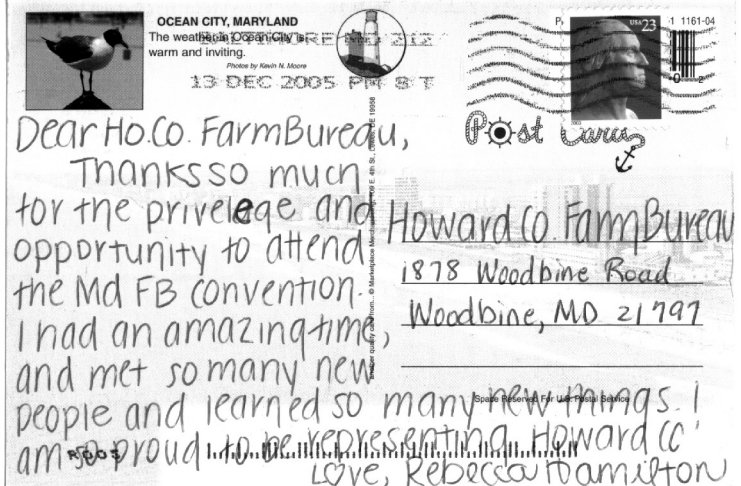 OCEAN CITY, MARYLAND
The weather in Ocean City is
warm and inviting.
Photos by Kevin N. Moore
BALTIMORE MD 212
13 DEC 2005 PM 8 T
USA 23
1 1161-04
0 2
Post Card
Dear Ho.Co. Farm Bureau,
Thanks so much
for the privelege and
opportunity to attend
the Md FB convention.
I had an amazing time,
and met so many new
people and learned so many new things. I
am so proud to be representing Howard Co
Love, Rebecca Hamilton
Howard Co. Farm Bureau
1878 Woodbine Road
Woodbine, MD 21797
Space Reserved For U.S. Postal Service